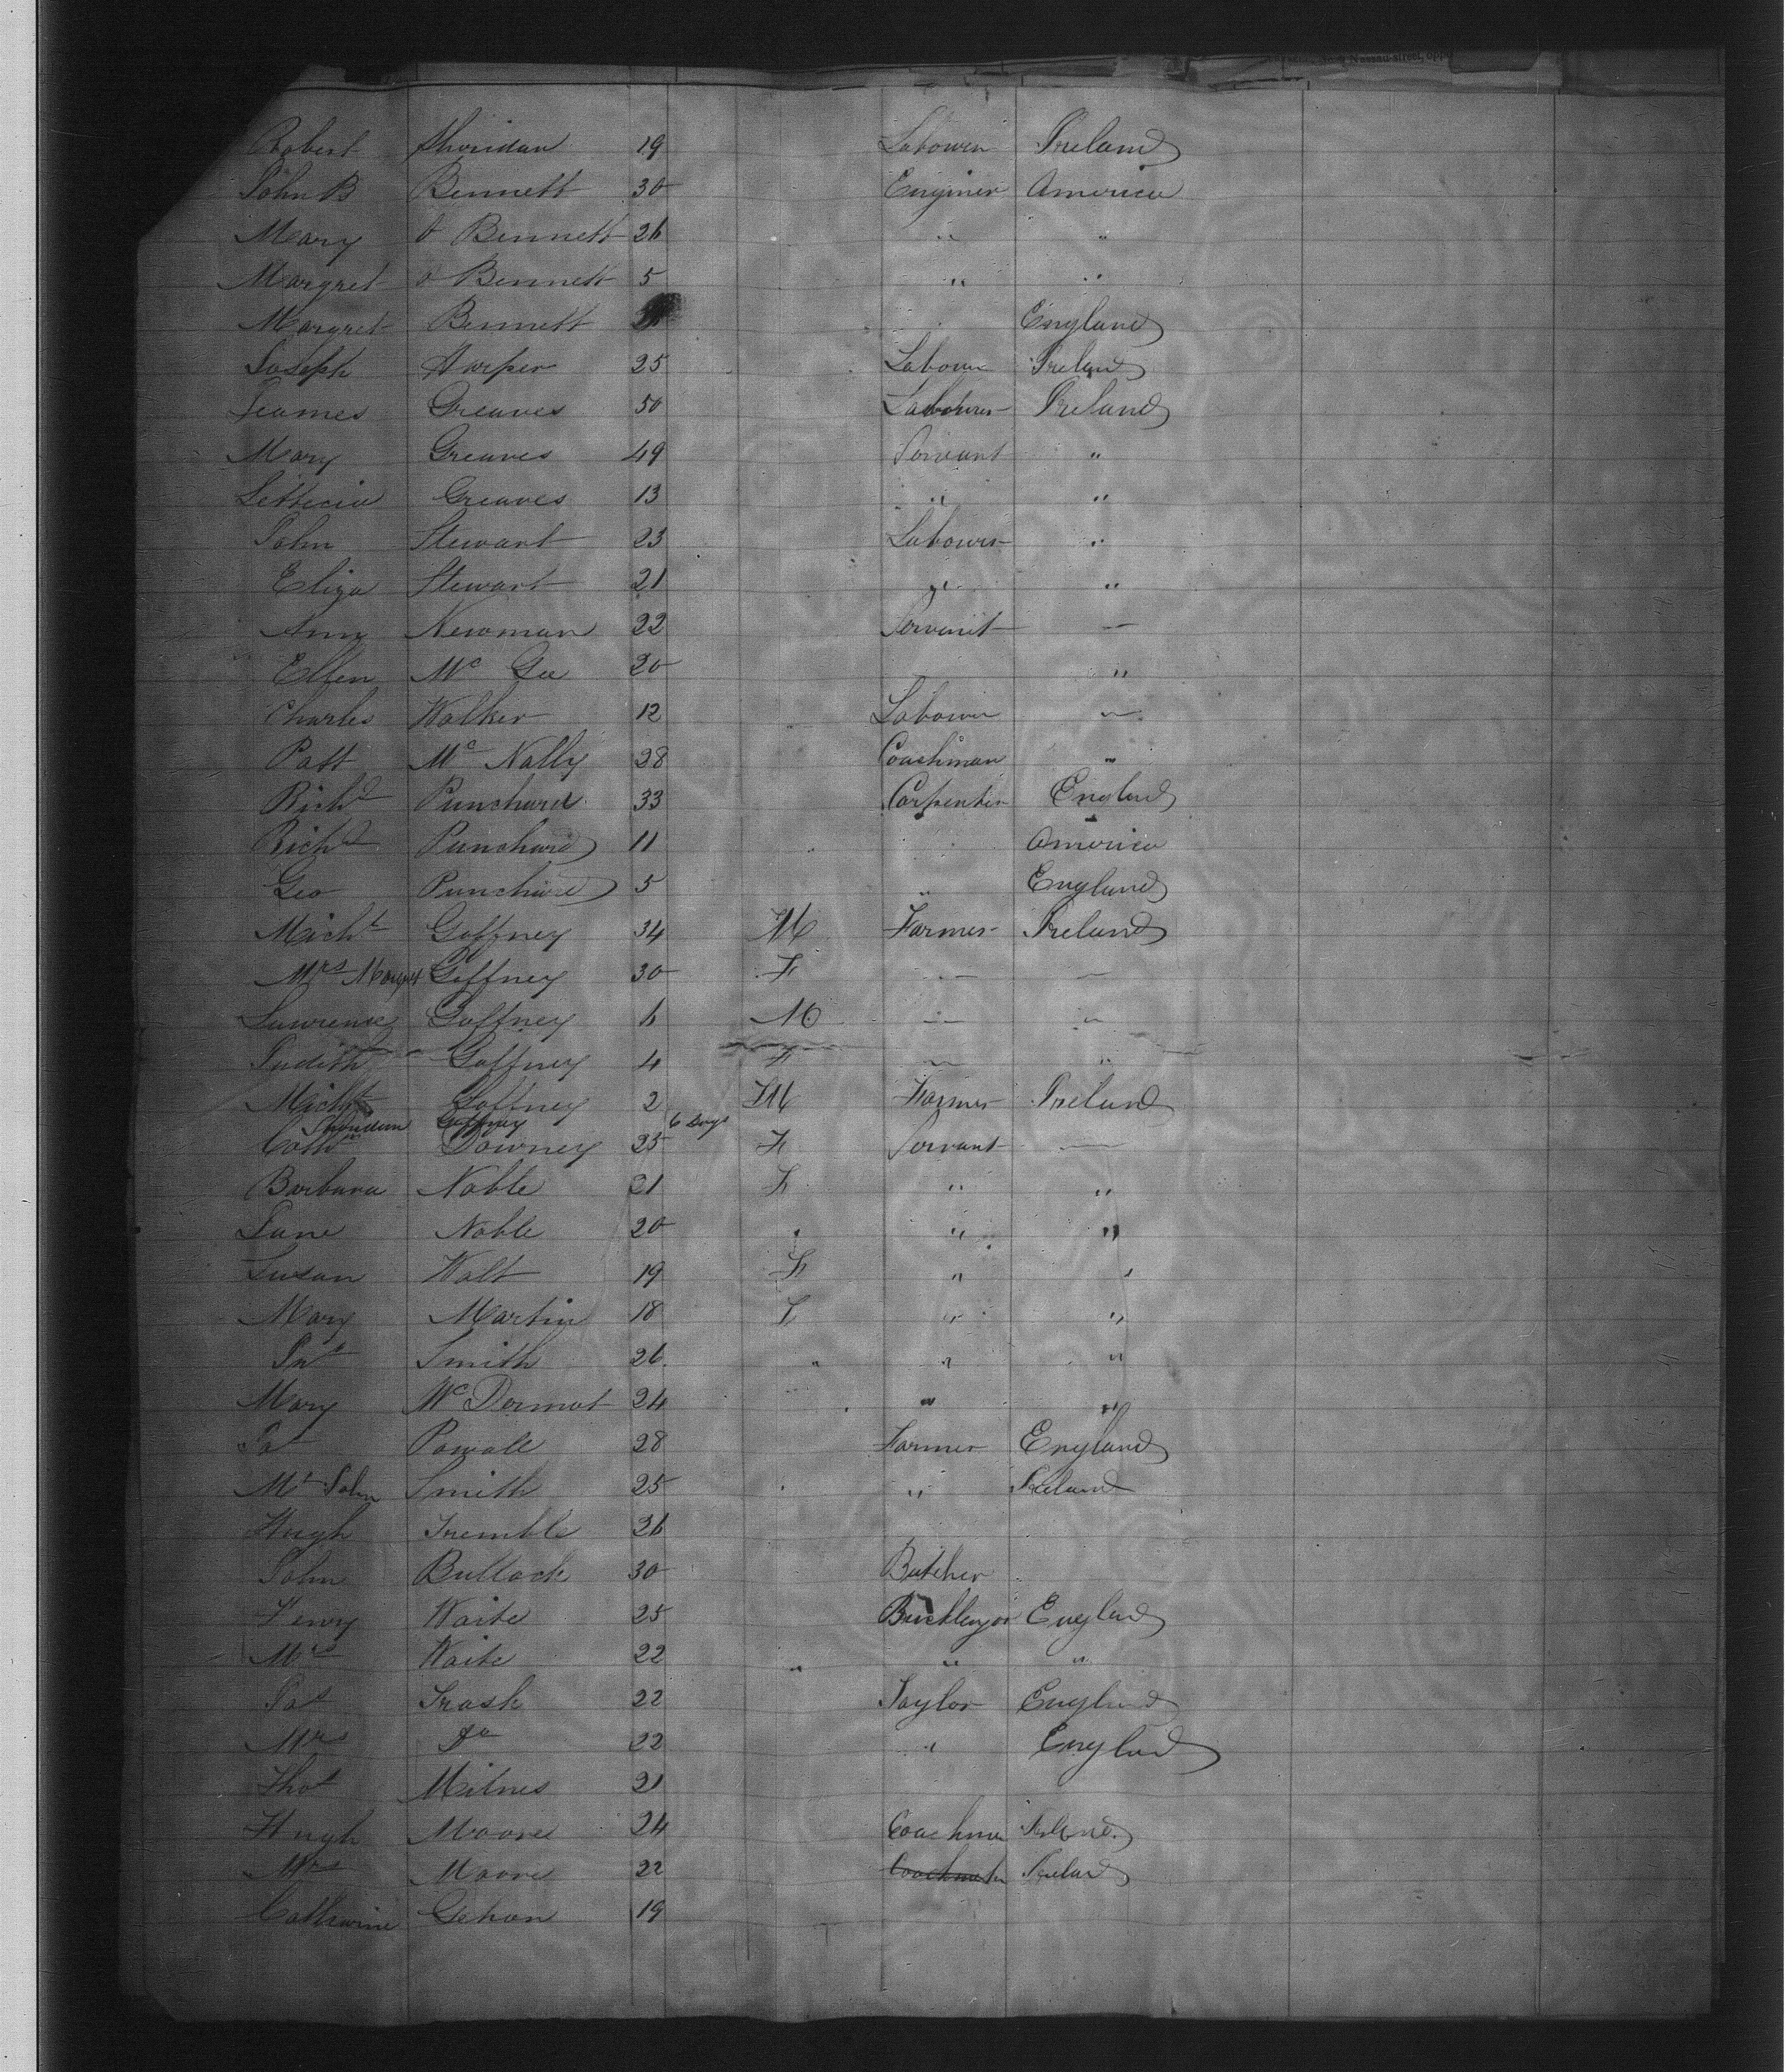 Nassau-street,
Robert Sheridan 19 Labourer Ireland
John B Bennett 30 Enginer America
Mary Bennett 26 " "
Margret Bennett 5 " "
Margret Bennett England
Joseph Harper 25 Labourer Ireland
Jeames Greaves 50 Labourer Ireland
Mary Greaves 49 Servant "
Lettecia Greaves 13 " "
John Stewart 23 Labourer "
Eliza Stewart 21 " "
Ann Newman 22 Servant —
Ellen Mc Gee 20 "
Charles Walker 12 Labourer —
Patt Mc Nally 28 Coachman "
Richd Punchard 33 Carpenter England
Richd Punchard 11 America
Geo Punchard 5 " England
Michl Gaffney 34 M Farmer Ireland
Mrs Margret Gaffney 30 F — —
Lawrence Gaffney 6 M — —
Judith Gaffney 4 F — "
Michl Gaffney 2 M Farmer Ireland
Sheridan Gaffney 6 Days
Cathn Downey 25 F Servant —
Barbara Noble 21 F " "
Jane Noble 20 " "
Susan Walt 19 F " "
Mary Martin 18 F " "
Smith 26 " " "
Mary Mc Dermot 24 " "
Powall 28 Farmer England
Mr John Smith 25 " Ireland
Hugh Tremble 26
John Bullock 30 Butcher
Henry Waite 25 Bricklayer England
Mrs Waite 22 " " "
Jas Trask 22 Taylor England
Mrs Do 22 " England
Thos Milnes 21
Hugh Moore 24 Coachman Ireland
Mrs Moore 22 Ireland
Catherine Gehan 19